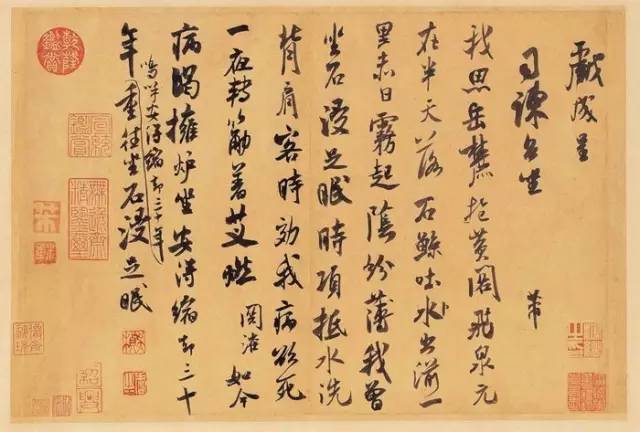 戲成呈
司諫台坐
芾
我思岳麓抱黃閣飛泉元
在半天落石鯨吐水出湔一
里赤日霧起蔭紛薄我曾
坐石浸足眠時項抵水洗
背肩客時効我病欲死
一夜轉筋著艾燃 關灌 如今
病渴擁爐坐安得縮却三十
嗚呼安得縮却三十年
年重往坐石浸足眠
乾隆鑑賞